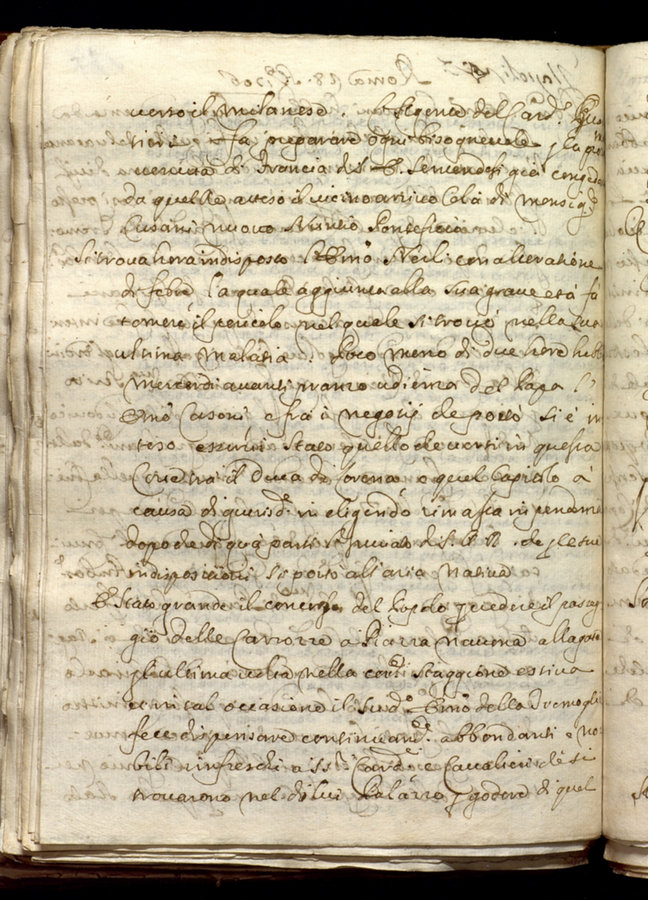 verso il Milanese. L'esigenza del Card.
fa preparare ogni bisognevole p la pros
venuta di Francia di S. E. sendosi già conged
da quella atteso il vicino arrivo Colà di monsig.
Cusani nuovo Nuntio Ponteficio
Si trova hora indisposto l'Emo Nerli con alteratione
di febre la quale aggiunta alla sua grave età fa
temere il pericolo nel quale si trovò nella sua
ultima malatia. Poco meno di due hore hebbe
mercordi avanti pranzo udienza dal Papa l'
Emo Casoni e fra i negotij de portò si è in
teso esservi stato quello che verte in questa
Corte tra il Duca di Lorena, e quel Capitolo à
causa di giurisd.
dopo che di quà partì l'inviato di S. A. R. che p le sue
indispositioni si portò all'aria nativa
È stato grande il concorso del Popolo p vedere il passag
gio delle Carrozze a Piazza Navona allagata
p l'ultima volta nella corrte staggione estiva
et in tal occasione il sud.o Emo della Tremoglie
fece dispensare continuamte abbondanti e no
bili rinfreschi a ss.ri Card.li e Cavalieri che si
trovarono nel di lui Palazzo p godere di quel